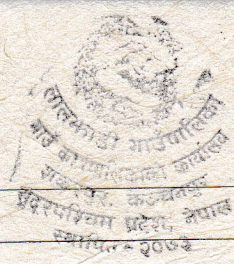 लालझाडी गाउँपालिका
गाउँ कार्यपालिकाको कार्यालय
कञ्चनपुर
सुदूरपश्चिम प्रदेश, नेपाल
स्थापित - २०७३